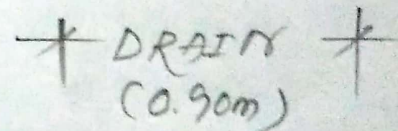 DRAIN
(0.90m)